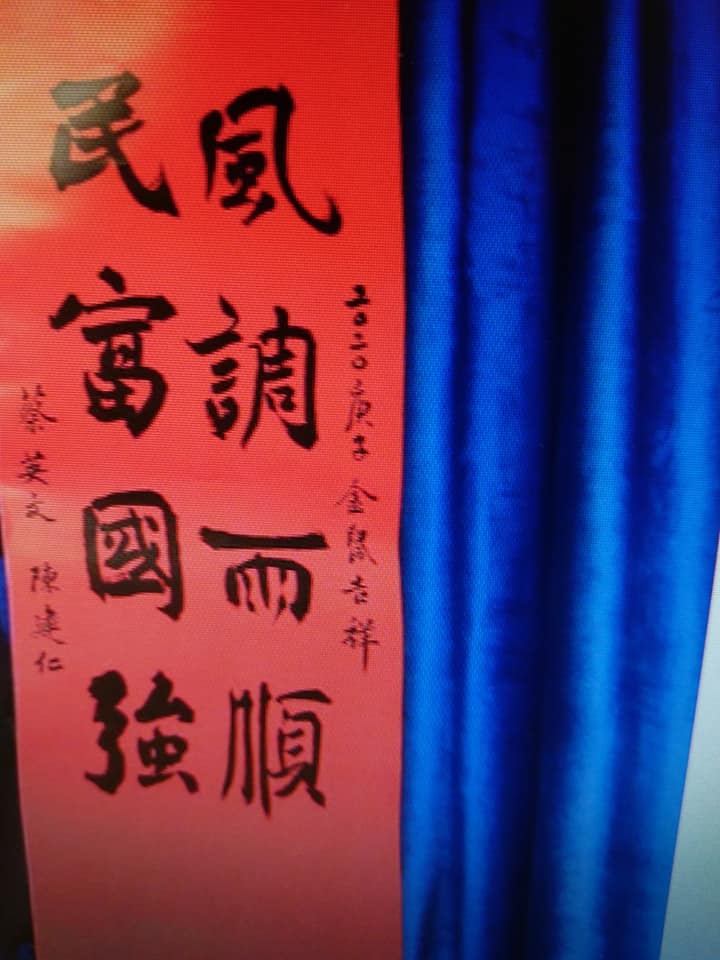 2020庚子金鼠吉祥
風調雨順
民富國強
蔡英文 陳建仁